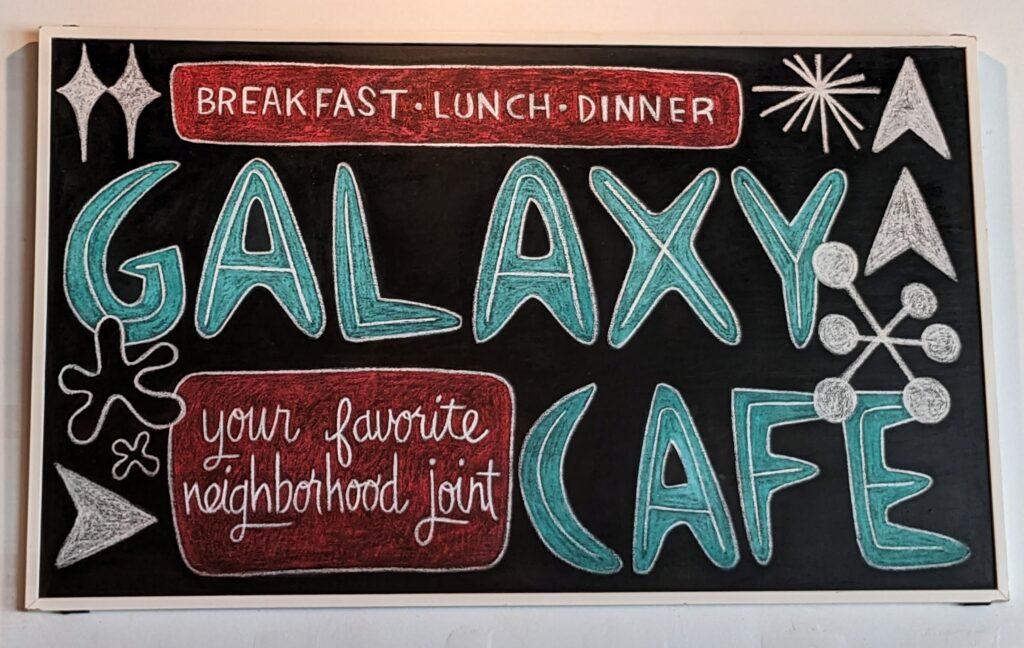 BREAKFAST · LUNCH · DINNER
GALAXY
CAFE
your favorite
neighborhood joint